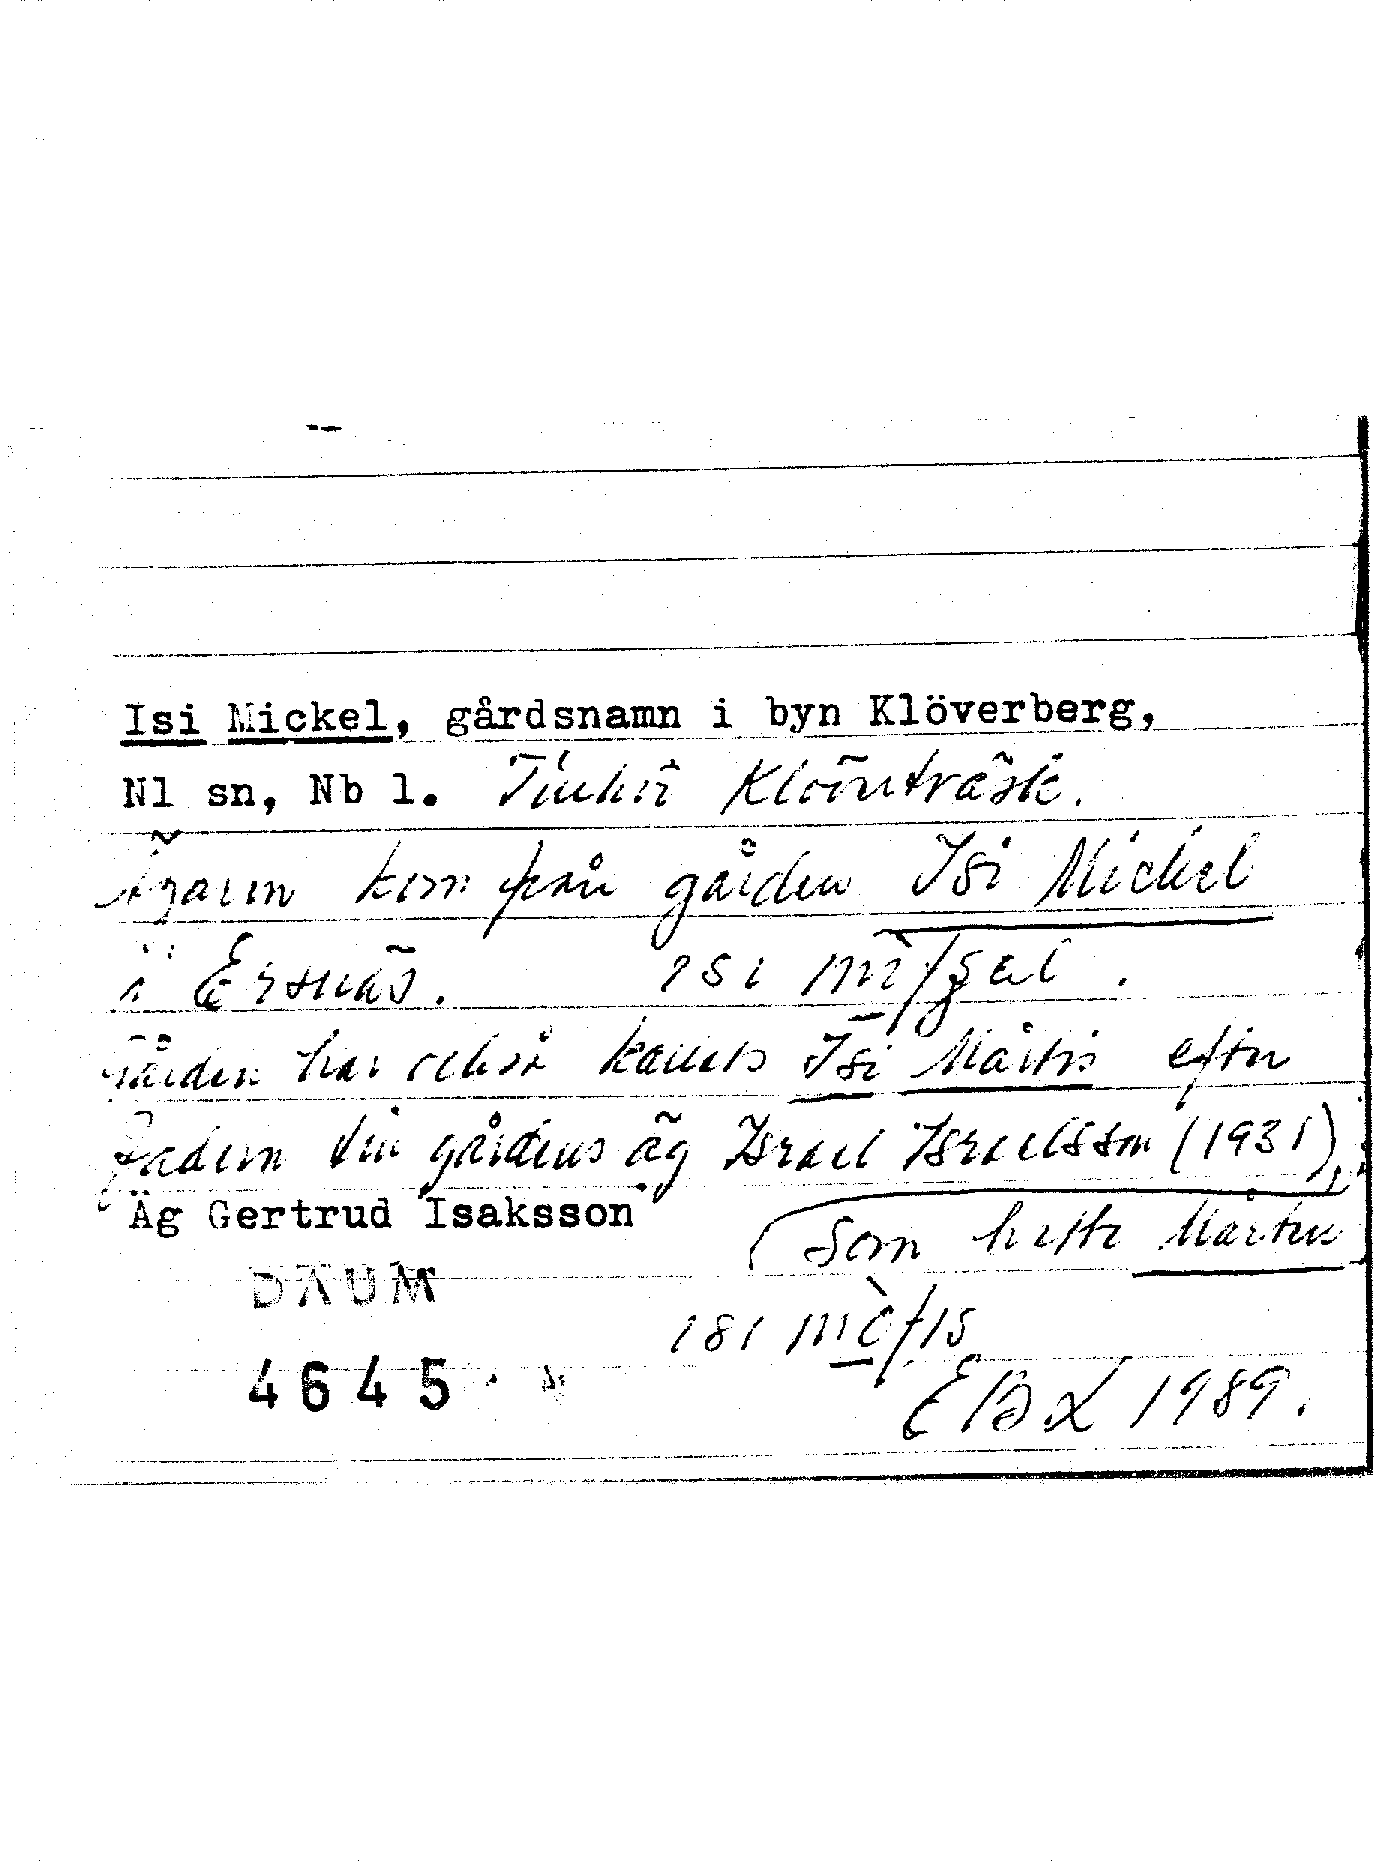 Isi Mickel, gårdsnamn i byn Klöverberg,
Nl sn, Nb l.
Ägaren kom från gården Isi Mickel
i Ersnäs. isi
Gården har också kallats Isi Mårtis efter
fadern till gårdens äg Israel Israelsson (1931),
Äg Gertrud Isaksson
som hette Mårten
DAUM
isi
4645
EBL 1989.